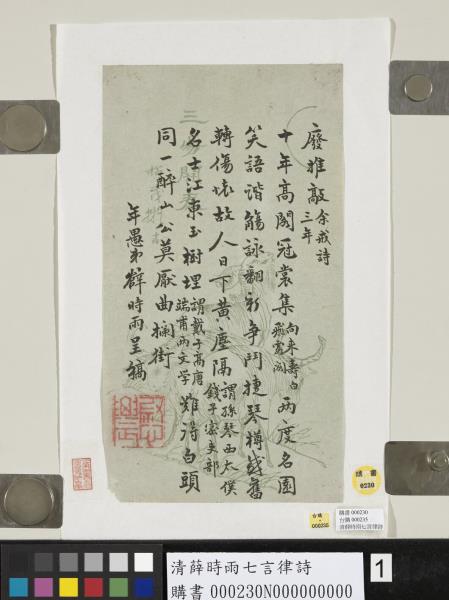 廢推敲余戒詩
三年
十年高閣冠裳集向來壽白
飛霞閣兩度名園
笑語諧觴詠翻新爭鬥捷琴樽感舊
轉傷懷故人日下黃塵隔謂孫琴西太僕
錢子密吏部
名士江東玉樹埋謂戴子高唐
端甫兩文學難得白頭
同一醉山公莫厭曲攔街
年愚弟薛時雨呈稿
三陽開泰
購書
0230
台購
000235
購書 000230
台購 000235
清薛時雨七言律詩
清薛時雨七言律詩
購書 000230N000000000
1